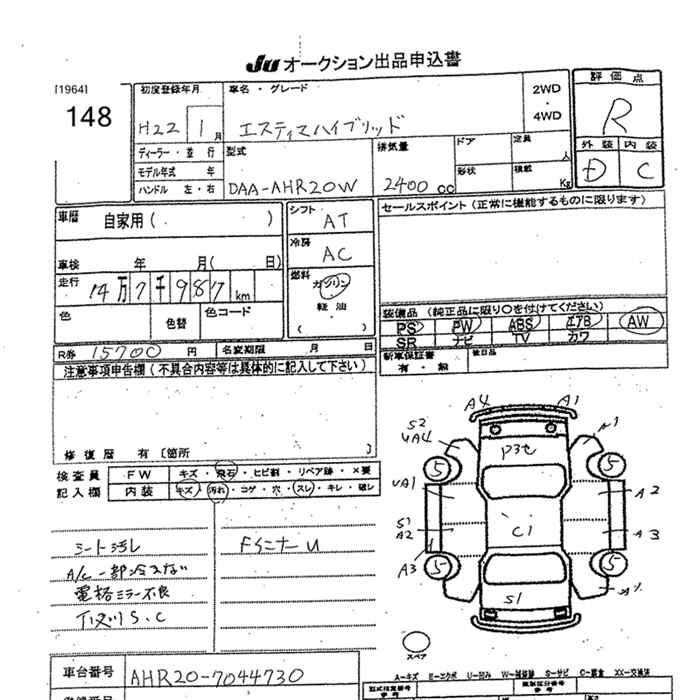 JU オークション出品申込書
[1964]
148
初度登録年月
H22 1月
車名・グレード
エスティマハイブリッド
2WD
・
4WD
評価点
R
外装 内装
D C
ディーラー・並行
モデル年式 年
ハンドル 左・右
型式
DAA-AHR20W
排気量
2400 cc
ドア
形状
定員 人
積載 Kg
車歴 自家用( )
車検 年 月( 日)
走行 14万7千987km
色
色替
色コード
シフト
AT
冷房
AC
燃料
ガソリン
・
軽油
( )
セールスポイント(正常に機能するものに限ります)
装備品(純正品に限り○を付けてください)
PS PW ABS エアB AW
SR ナビ TV カワ
新車保証書
有・無
後日品
R券 15700 円 名変期限 月 日
注意事項申告欄(不具合内容等は具体的に記入して下さい)
修復歴 有〔箇所 〕
検査員
記入欄
FW キズ・飛石・ヒビ割・リペア跡・×要
内装 キズ・汚れ・コゲ・穴・スレ・キレ・破レ
シート汚レ
A/C一部冷えない
電格ミラー不良
下回りS.C
FインナーU
A4 A1
S2
UA4
A1
P3セ
5 5
UA1 A2
S1
A2
C1
A3
A3
5 5
S1
スペア
A-キズ E-エクボ U-凹ミ W-補修跡 S-サビ C-腐食 XX-交換済
車台番号 AHR20-7044730